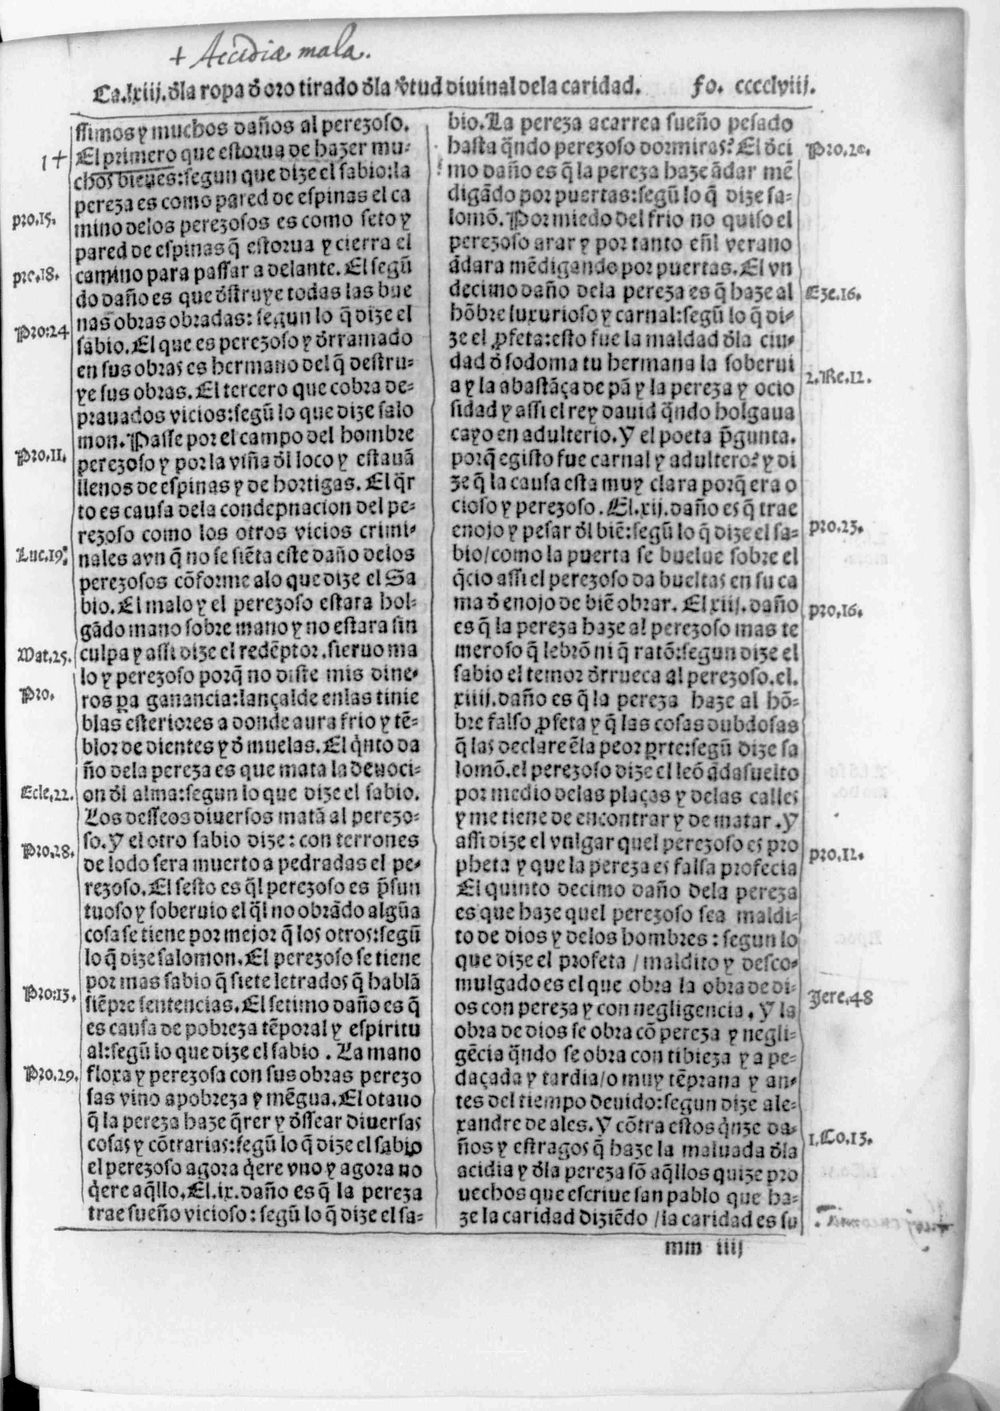 + Accidiæ mala.
Ca.lxiij.đla ropa đ oro tirado đla v̄tud diuinal dela caridad. fo. cccclviij.
ssimos y muchos daños al perezoso.
1+ El primero que estorua de hazer mu-
chos bienes:segun que dize el sabio:la
pereza es como pared de espinas el ca
pro.15. mino delos perezosos es como seto y
pared de espinas q̃ estorua y cierra el
pro.18. camino para passar a delante. El segũ
do daño es que đstruye todas las bue
nas obras obradas: segun lo q̃ dize el
Pro:24 sabio. El que es perezoso y đrramado
en sus obras es hermano del q̃ destru-
ye sus obras. El tercero que cobra de-
prauados vicios:segũ lo que dize salo
mon. Passe por el campo del hombre
Pro.11. perezoso y por la viña đl loco y estauã
llenos de espinas y de hortigas. El q̃r
to es causa dela condepnacion del pe-
rezoso como los otros vicios crimi-
Luc.19: nales avn q̃ no se siẽta este daño delos
perezosos cõforme alo que dize el Sa
bio. El malo y el perezoso estara hol-
gãdo mano sobre mano y no estara sin
Mat.25. culpa y assi dize el redẽptor. sieruo ma
lo y perezoso porq̃ no diste mis dine-
Pro. ros p̱a ganancia:lançalde enlas tinie
blas esteriores a donde aura frio y tẽ-
blor de dientes y đ muelas. El q̃nto da
ño dela pereza es que mata la deuoci-
Ecle,22. on đl alma:segun lo que dize el sabio.
Los desseos diuersos matã al perezo-
so. Y el otro sabio dize: con terrones
Pro,28. de lodo sera muerto a pedradas el pe-
rezoso. El sesto es q̃l perezoso es p̃sun
tuoso y soberuio el q̃l no obrãdo algũa
cosa se tiene por mejor q̃ los otros:segũ
lo q̃ dize salomon. El perezoso se tiene
por mas sabio q̃ siete letrados q̃ hablã
Pro:13. siẽpre sentencias. El setimo daño es q̃
es causa de pobreza tẽporal y espiritu
al:segũ lo que dize el sabio . La mano
Pro.29. floxa y perezosa con sus obras perezo
sas vino a pobreza y mẽgua. El otauo
q̃ la pereza haze q̃rer y đssear diuersas
cosas y cõtrarias:segũ lo q̃ dize el sabio
el perezoso agora q̃ere vno y agora no
q̃ere aq̃llo. El.ix.daño es q̃ la pereza
trae sueño vicioso: segũ lo q̃ dize el sa-
bio. La pereza acarrea sueño pesado
hasta q̃ndo perezoso dormiras? El đci Pro,20.
mo daño es q̃ la pereza haze ãdar mẽ
digãdo por puertas:segũ lo q̃ dize sa-
lomõ. Por miedo del frio no quiso el
perezoso arar y por tanto eñl verano
ãdara mẽdigando por puertas. El vn
decimo daño dela pereza es q̃ haze al Eze.16.
hõbre luxurioso y carnal:segũ lo q̃ di-
ze el ꝓfeta: esto fue la maldad đla ciu-
dad đ sodoma tu hermana la soberui
a y la abastãça de pã y la pereza y ocio 2.Re.12.
sidad y assi el rey dauid q̃ndo holgaua
cayo en adulterio. Y el poeta p̃gunta.
porq̃ egisto fue carnal y adultero? y di
ze q̃ la causa esta muy clara porq̃ era o
cioso y perezoso. El.xij.daño es q̃ trae
enojo y pesar đl biẽ: segũ lo q̃ dize el sa- pro.23.
bio/como la puerta se buelue sobre el
q̃cio assi el perezoso da bueltas en su ca
ma đ enojo de biẽ obrar. El xiij. daño pro,16.
es q̃ la pereza haze al perezoso mas te
meroso q̃ lebrõ ni q̃ ratõ: segun dize el
sabio el temor đrrueca al perezoso. el.
xiiij. daño es q̃ la pereza haze al hõ-
bre falso ꝓfeta y q̃ las cosas dubdosas
q̃ las declare ẽla peor p̱te:segũ dize sa
lomõ. el perezoso dize el leõ ãda suelto
por medio delas plaças y delas calles
y me tiene de encontrar y de matar . Y
assi dize el vulgar quel perezoso es pro
pheta y que la pereza es falsa profecia pro,12.
El quinto decimo daño dela pereza
es que haze quel perezoso sea maldi-
to de dios y delos hombres: segun lo
que dize el profeta / maldito y desco-
mulgado es el que obra la obra de di- Jere,48
os con pereza y con negligencia. Y la
obra de dios se obra cõ pereza y negli-
gẽcia q̃ndo se obra con tibieza y a pe-
daçada y tardia/o muy tẽprana y an-
tes del tiempo deuido: segun dize ale-
xandre de ales. Y cõtra estos q̃nze da-
ños y estragos q̃ haze la maluada đla 1.Co.13.
acidia y đla pereza sõ aq̃llos quize pro
uechos que escriue san pablo que ha-
ze la caridad diziẽdo /la caridad es su
mm iiij